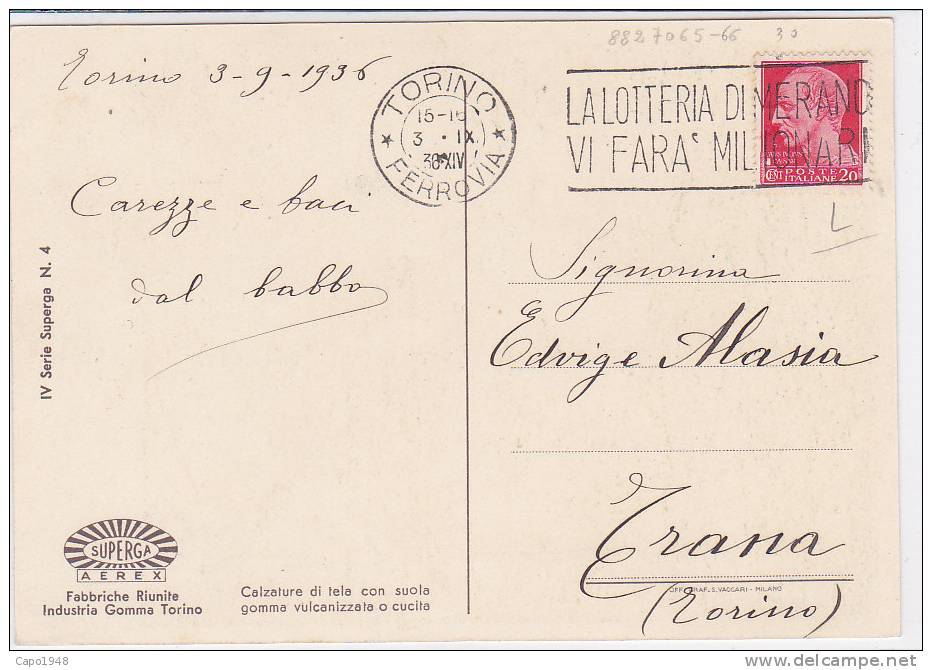 8827065-66 30
Torino 3-9-1936
TORINO
15-16
3 · IX
36 XIV
FERROVIA
LA LOTTERIA DI MERANO
VI FARA' MILIONARI
POSTE
CENT ITALIANE 20
L
Carezze e baci
dal babbo
IV Serie Superga N. 4
Signorina
Edvige Alasia
Trana
(Torino)
SUPERGA
AEREX
Fabbriche Riunite
Industria Gomma Torino
Calzature di tela con suola
gomma vulcanizzata o cucita
OFF. GRAF. S. VACCARI - MILANO
Capo1948
www.delcampe.net